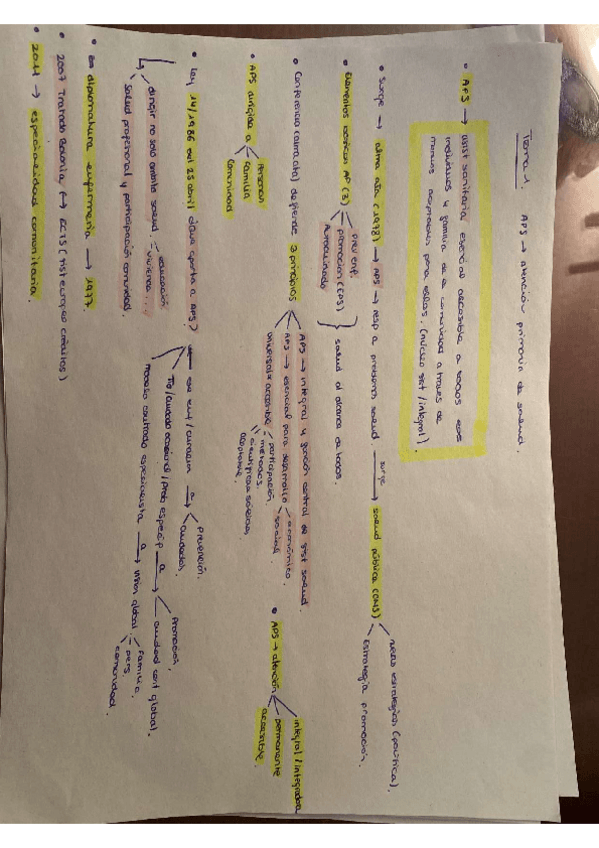 Tema 1. APS → atención primaria de salud.
• APS → Asist sanitaria esencial accesible a todos los
individuos y familia de la comunidad a través de
menos aceptables para ellas. (núcleo sist / integral)
• Surge → alma ata (1978) → APS → resp a problemas salud surge → salud pública (OMS)
áreas estratégicas (política).
Estrategia promoción.
• Elementos básicos AP (3)
prev enf.
promoción (EPS)
Autocuidado
salud al alcance de todos.
• Conferencia (alma ata) defiende 3 principios
APS → integral y función central de sist salud.
APS → esencial para desarrollo
económico.
social.
universal & accesible
participación
métodos.
científica & social
aceptable.
• APS dirigida a
Persona
Familia
Comunidad
• APS → atención
integral / integrada
permanente
accesible.
• Ley 14/1986 del 25 abril (que aporta a APS)
de enf / curación a →
prevención.
cuidados.
Tto / cuidado / prob especif a →
Promoción,
cuidad cont global.
Modelo centrado especialista a → visión global
familia,
pers,
comunidad.
dirigir no solo ámbito salud
educación
vivienda ...
salud profesional y participación comunidad.
• diplomatura enfermería → 1977.
• 2007 Tratado Bolonia (→ ECTS (sist europeo créditos)
• 2011 → especialidad comunitaria.